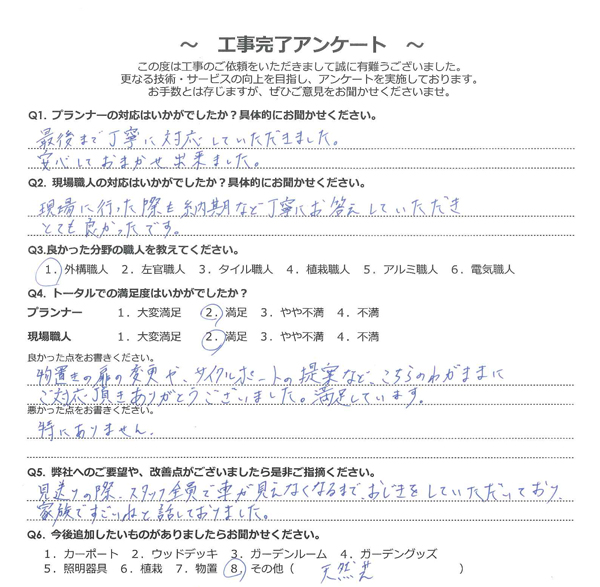 ～ 工事完了アンケート ～
この度は工事のご依頼をいただきまして誠に有難うございました。
更なる技術・サービスの向上を目指し、アンケートを実施しております。
お手数とは存じますが、ぜひご意見をお聞かせくださいませ。
Q1. プランナーの対応はいかがでしたか？具体的にお聞かせください。
最後まで丁寧に対応していただきました。
安心しておまかせ出来ました。
Q2. 現場職人の対応はいかがでしたか？具体的にお聞かせください。
現場に行った際も納期など丁寧にお答えしていただき
とても良かったです。
Q3.良かった分野の職人を教えてください。
1. 外構職人 2. 左官職人 3. タイル職人 4. 植栽職人 5. アルミ職人 6. 電気職人
Q4. トータルでの満足度はいかがでしたか？
プランナー 1. 大変満足 2. 満足 3. やや不満 4. 不満
現場職人 1. 大変満足 2. 満足 3. やや不満 4. 不満
良かった点をお書きください。
物置きの扉の変更や、サイクルポートの提案など、こちらのわがままに
ご対応頂きありがとうございました。満足しています。
悪かった点をお書きください。
特にありません.
Q5. 弊社へのご要望や、改善点がございましたら是非ご指摘ください。
見送りの際、スタッフ全員で車が見えなくなるまで、おじぎをしていただいており、
家族ですごいねと話しておりました。
Q6. 今後追加したいものがありましたらお聞かせください。
1. カーポート 2. ウッドデッキ 3. ガーデンルーム 4. ガーデングッズ
5. 照明器具 6. 植栽 7. 物置 8. その他（ 天然芝 ）